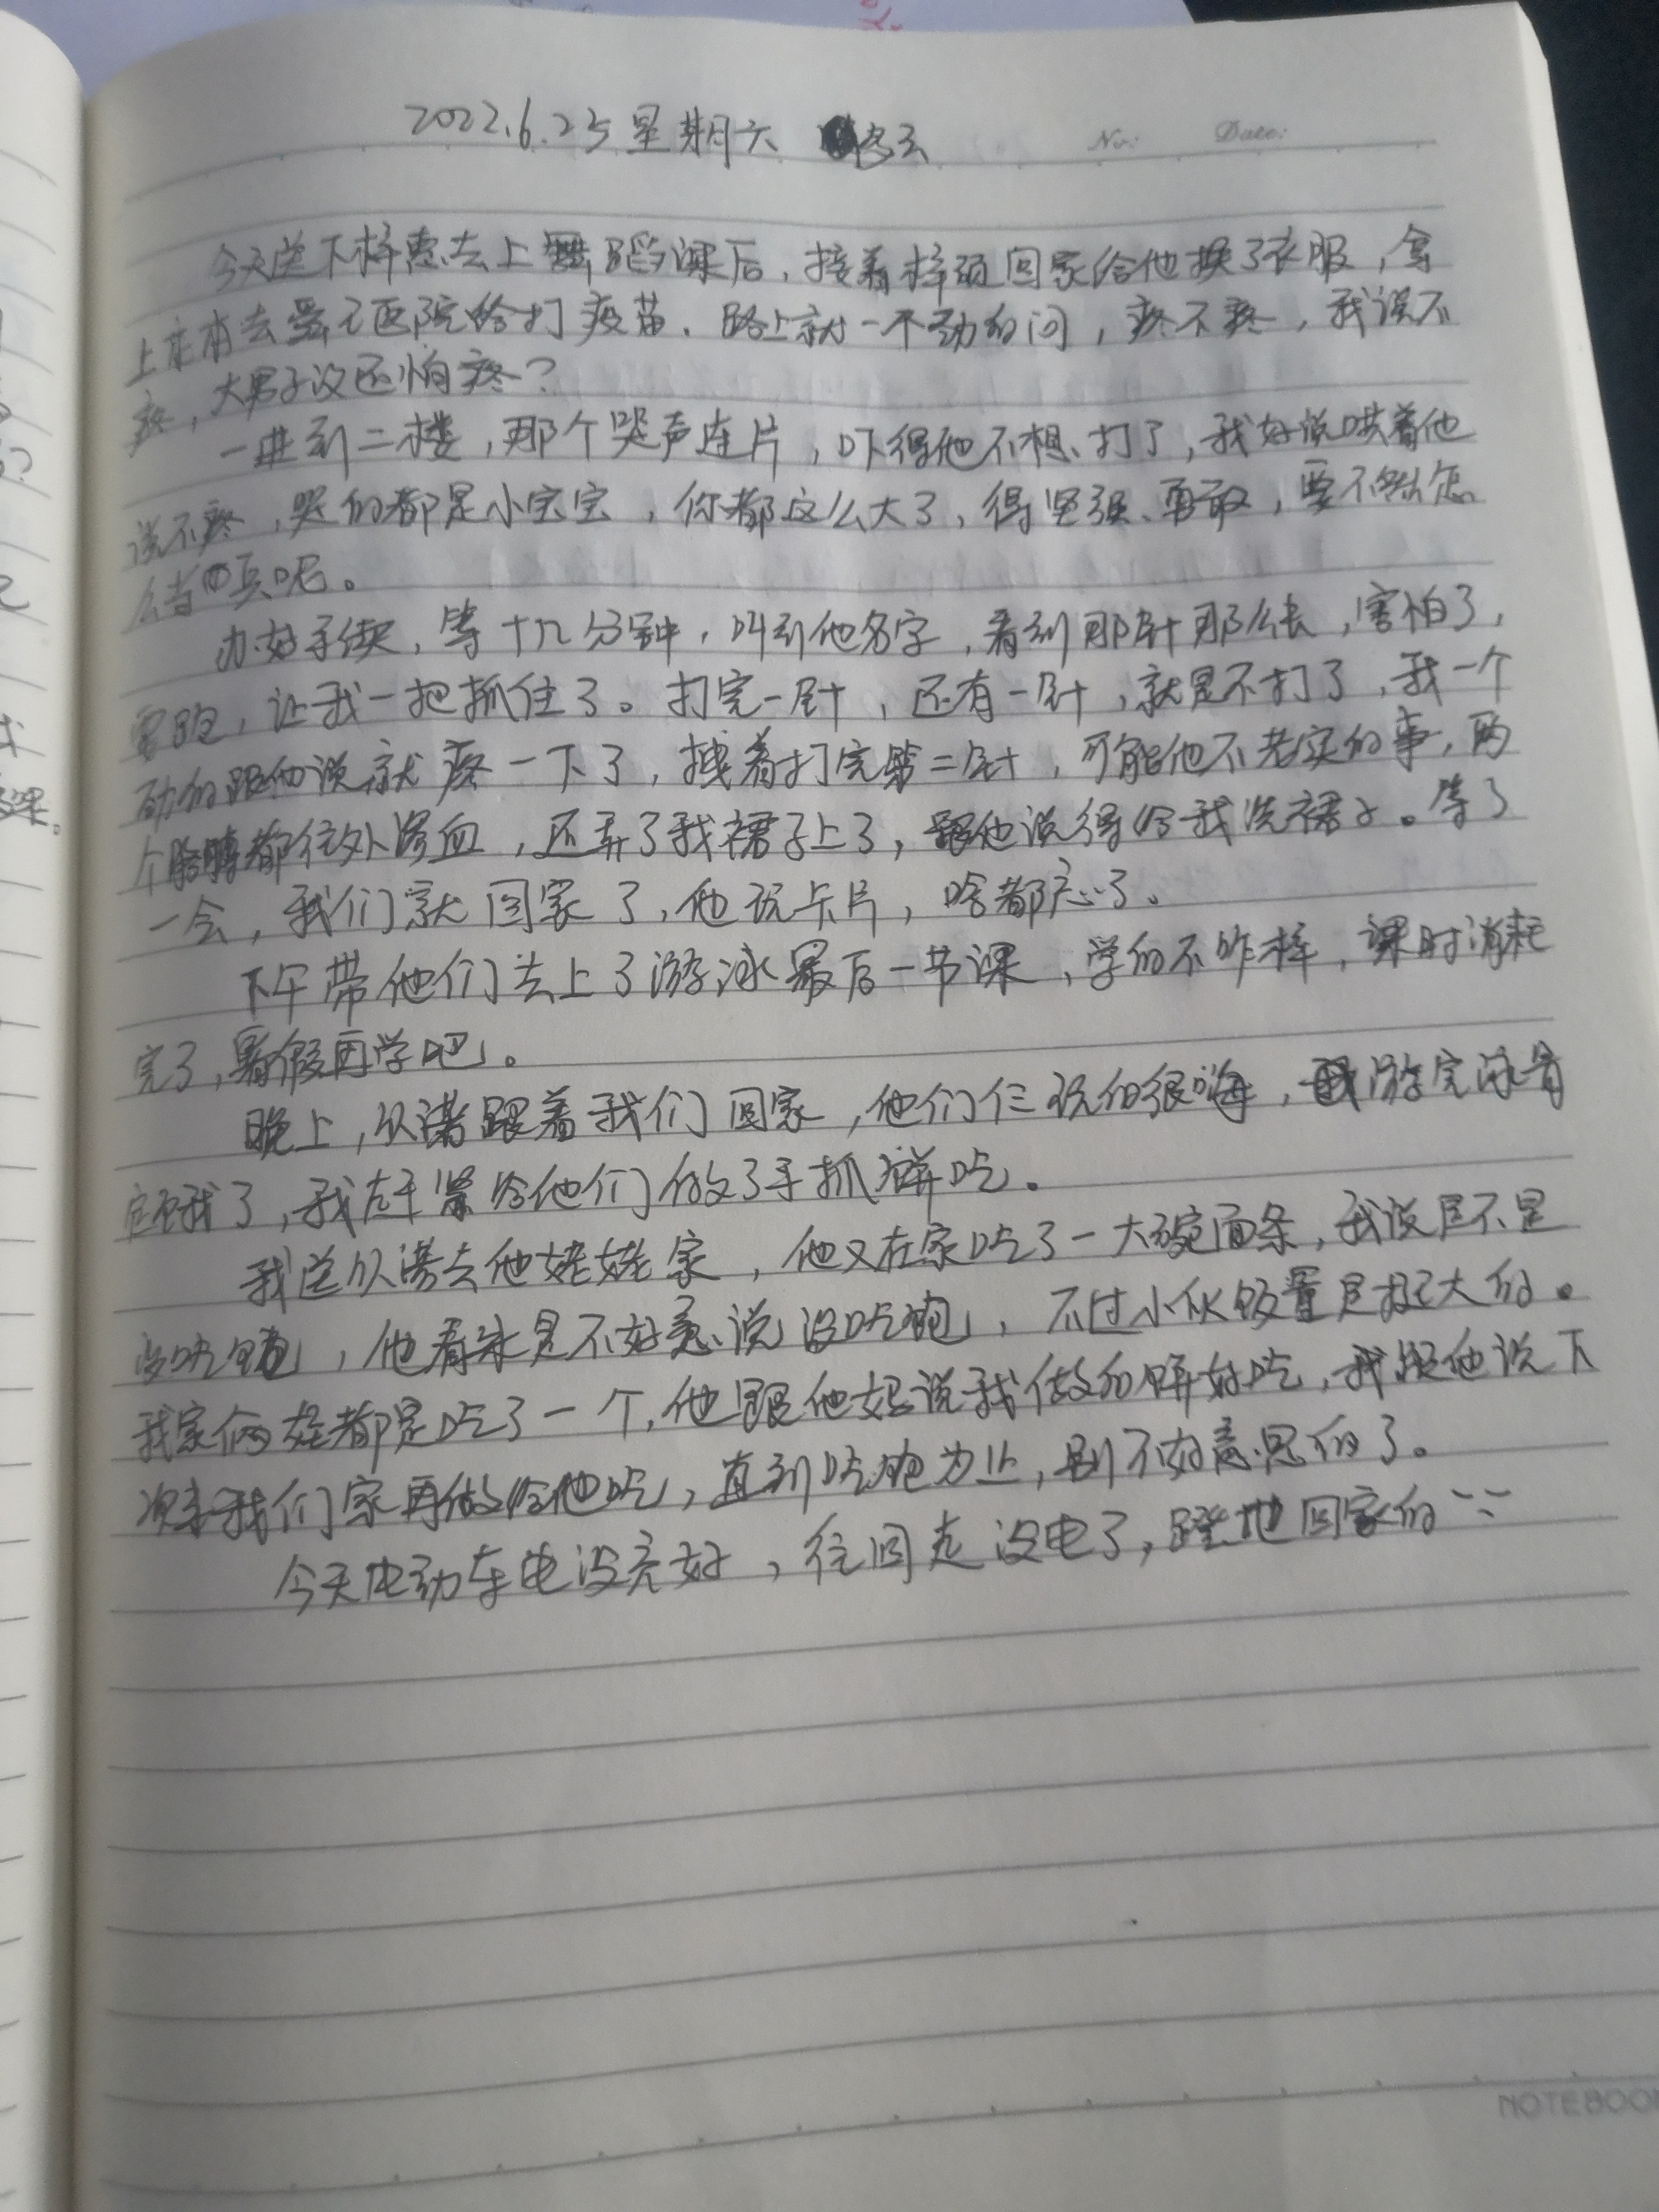 2022.6.25 星期六 多云
No: Date:
今天送下梓惠去上舞蹈课后，接着梓硕回家给他换了衣服，拿
上本本去医院给打疫苗，路上就一个劲的问，疼不疼，我说不
疼，大男子汉还怕疼？
一进到二楼，那个哭声连片，吓得他不想打了，我好说哄着他
说不疼，哭的都是小宝宝，你都这么大了，得坚强、勇敢，要不然怎
么当兵呢。
办好手续，等十几分钟，叫到他名字，看到那针那么长，害怕了，
要跑，让我一把抓住了。打完一针，还有一针，就是不打了，我一个
劲的跟他说就疼一下了，拽着打完第二针，可能他不老实的事，两
个胳膊都往外渗血，还弄了我裙子上了，跟他说得给我洗裙子。等了
一会，我们就回家了，他玩卡片，啥都忘了。
下午带他们去上了游泳最后一节课，学的不咋样，课时消耗
完了，暑假再学吧。
晚上，以诺跟着我们回家，他们仨玩的很嗨，游完泳肯
定饿了，我赶紧给他们做了手抓饼吃。
我送以诺去他姥姥家，他又在家吃了一大碗面条，我说是不是
没吃饱，他看来是不好意说没吃饱，不过小伙饭量是挺大的。
我家俩娃都是吃了一个，他跟他妈说我做的饼好吃，我跟他说下
次来我们家再做给他吃，直到吃饱为止，别不好意思的了。
今天电动车电没充好，往回走没电了，蹬地回家的
NOTEBOO